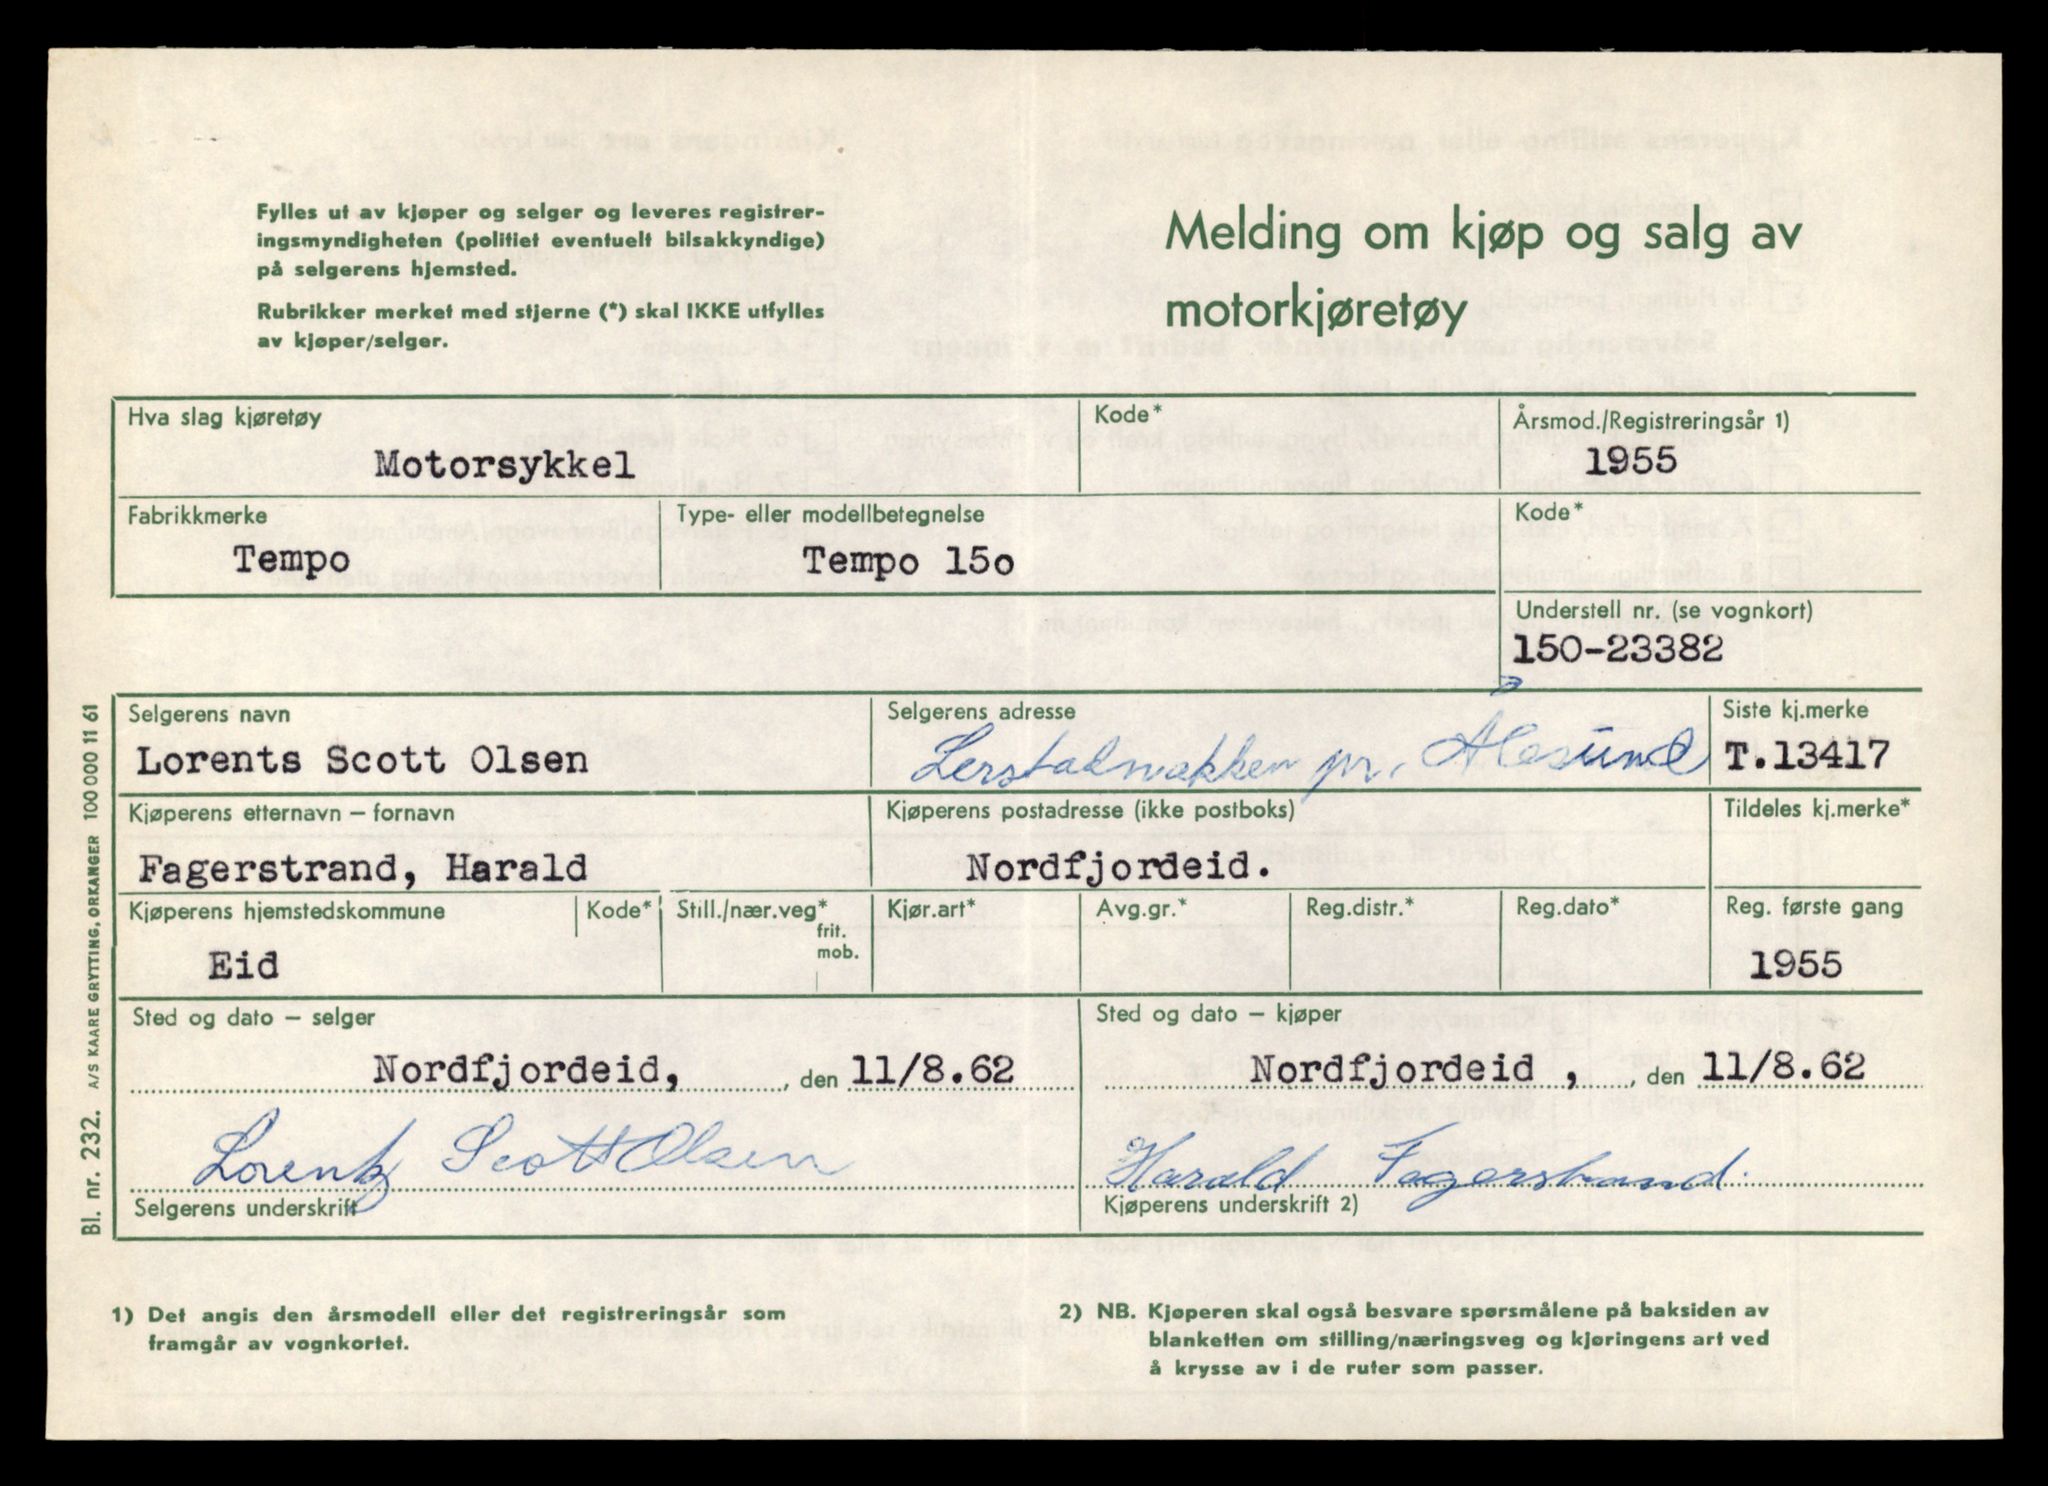 Fylles ut av kjøper og selger og leveres registrer-
ingsmyndigheten (politiet eventuelt bilsakkyndige)
på selgerens hjemsted.
Rubrikker merket med stjerne (*) skal IKKE utfylles
av kjøper/selger.
Melding om kjøp og salg av
motorkjøretøy
Hva slag kjøretøy
Motorsykkel
Kode*
Årsmod./Registreringsår 1)
1955
Fabrikkmerke
Tempo
Type- eller modellbetegnelse
Tempo 15o
Kode*
Understell nr. (se vognkort)
150-23382
Selgerens navn
Lorents Scott Olsen
Selgerens adresse
pr. Ålesund
Siste kj.merke
T.13417
Kjøperens etternavn – fornavn
Fagerstrand, Harald
Kjøperens postadresse (ikke postboks)
Nordfjordeid.
Tildeles kj.merke*
Kjøperens hjemstedskommune
Eid
Kode*
Still./nær.veg*
frit.
mob.
Kjør.art*
Avg.gr.*
Reg.distr.*
Reg.dato*
Reg. første gang
1955
Sted og dato – selger
Nordfjordeid, , den 11/8.62
Lorentz Scott Olsen
Selgerens underskrift
Sted og dato – kjøper
Nordfjordeid , , den 11/8.62
Harald Fagerstrand.
Kjøperens underskrift 2)
1) Det angis den årsmodell eller det registreringsår som
framgår av vognkortet.
2) NB. Kjøperen skal også besvare spørsmålene på baksiden av
blanketten om stilling/næringsveg og kjøringens art ved
å krysse av i de ruter som passer.
Bl. nr. 232. A/S KAARE GRYTTING, ORKANGER 100 000 11 61